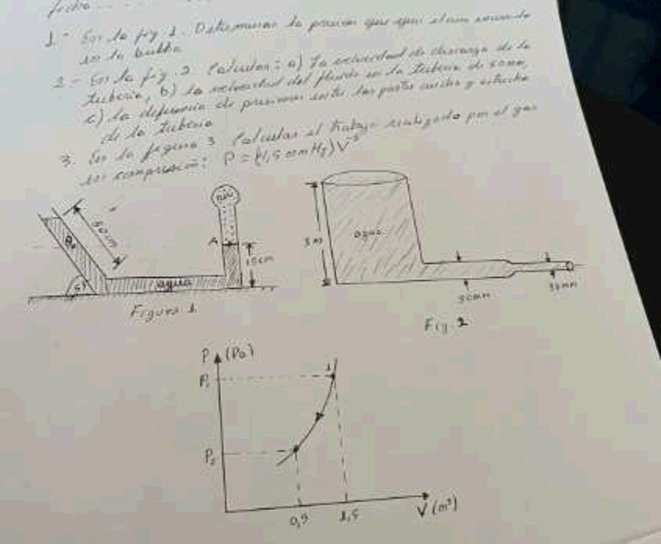 1.- En la fig 1. Determinar la presión que
en la bulba
2.- En la fig. 2. Calcular: a) La velocidad de descarga de la
tubería, b) la velocidad del fluido en la tubería de 50mm,
c) la diferencia de presiones entre las partes ancha y estrecha
de la tubería
3. En la figura 3 Calcular el trabajo realizado por el gas
en compresión: P =
80cm
A
15cm
agua
Figura 1
3m
agua
30mm
Fig. 2
P (Pa)
P₁
1
P₂
0,5
1,5
V (m³)